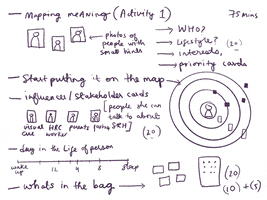 — Mapping meaning (Activity 1)
75 mins
photos of people with small hints
WHO?
Lifestyle?
(20)
interests,
priority cards
— Start putting it on the map
— influencer/stakeholder cards
[people she can talk to about SRH]
visual cue
HRC worker
parents
(20)
— day in the life of person
wake up
4
8
sleep
— whats in the bag
(20)
(10) + (5)